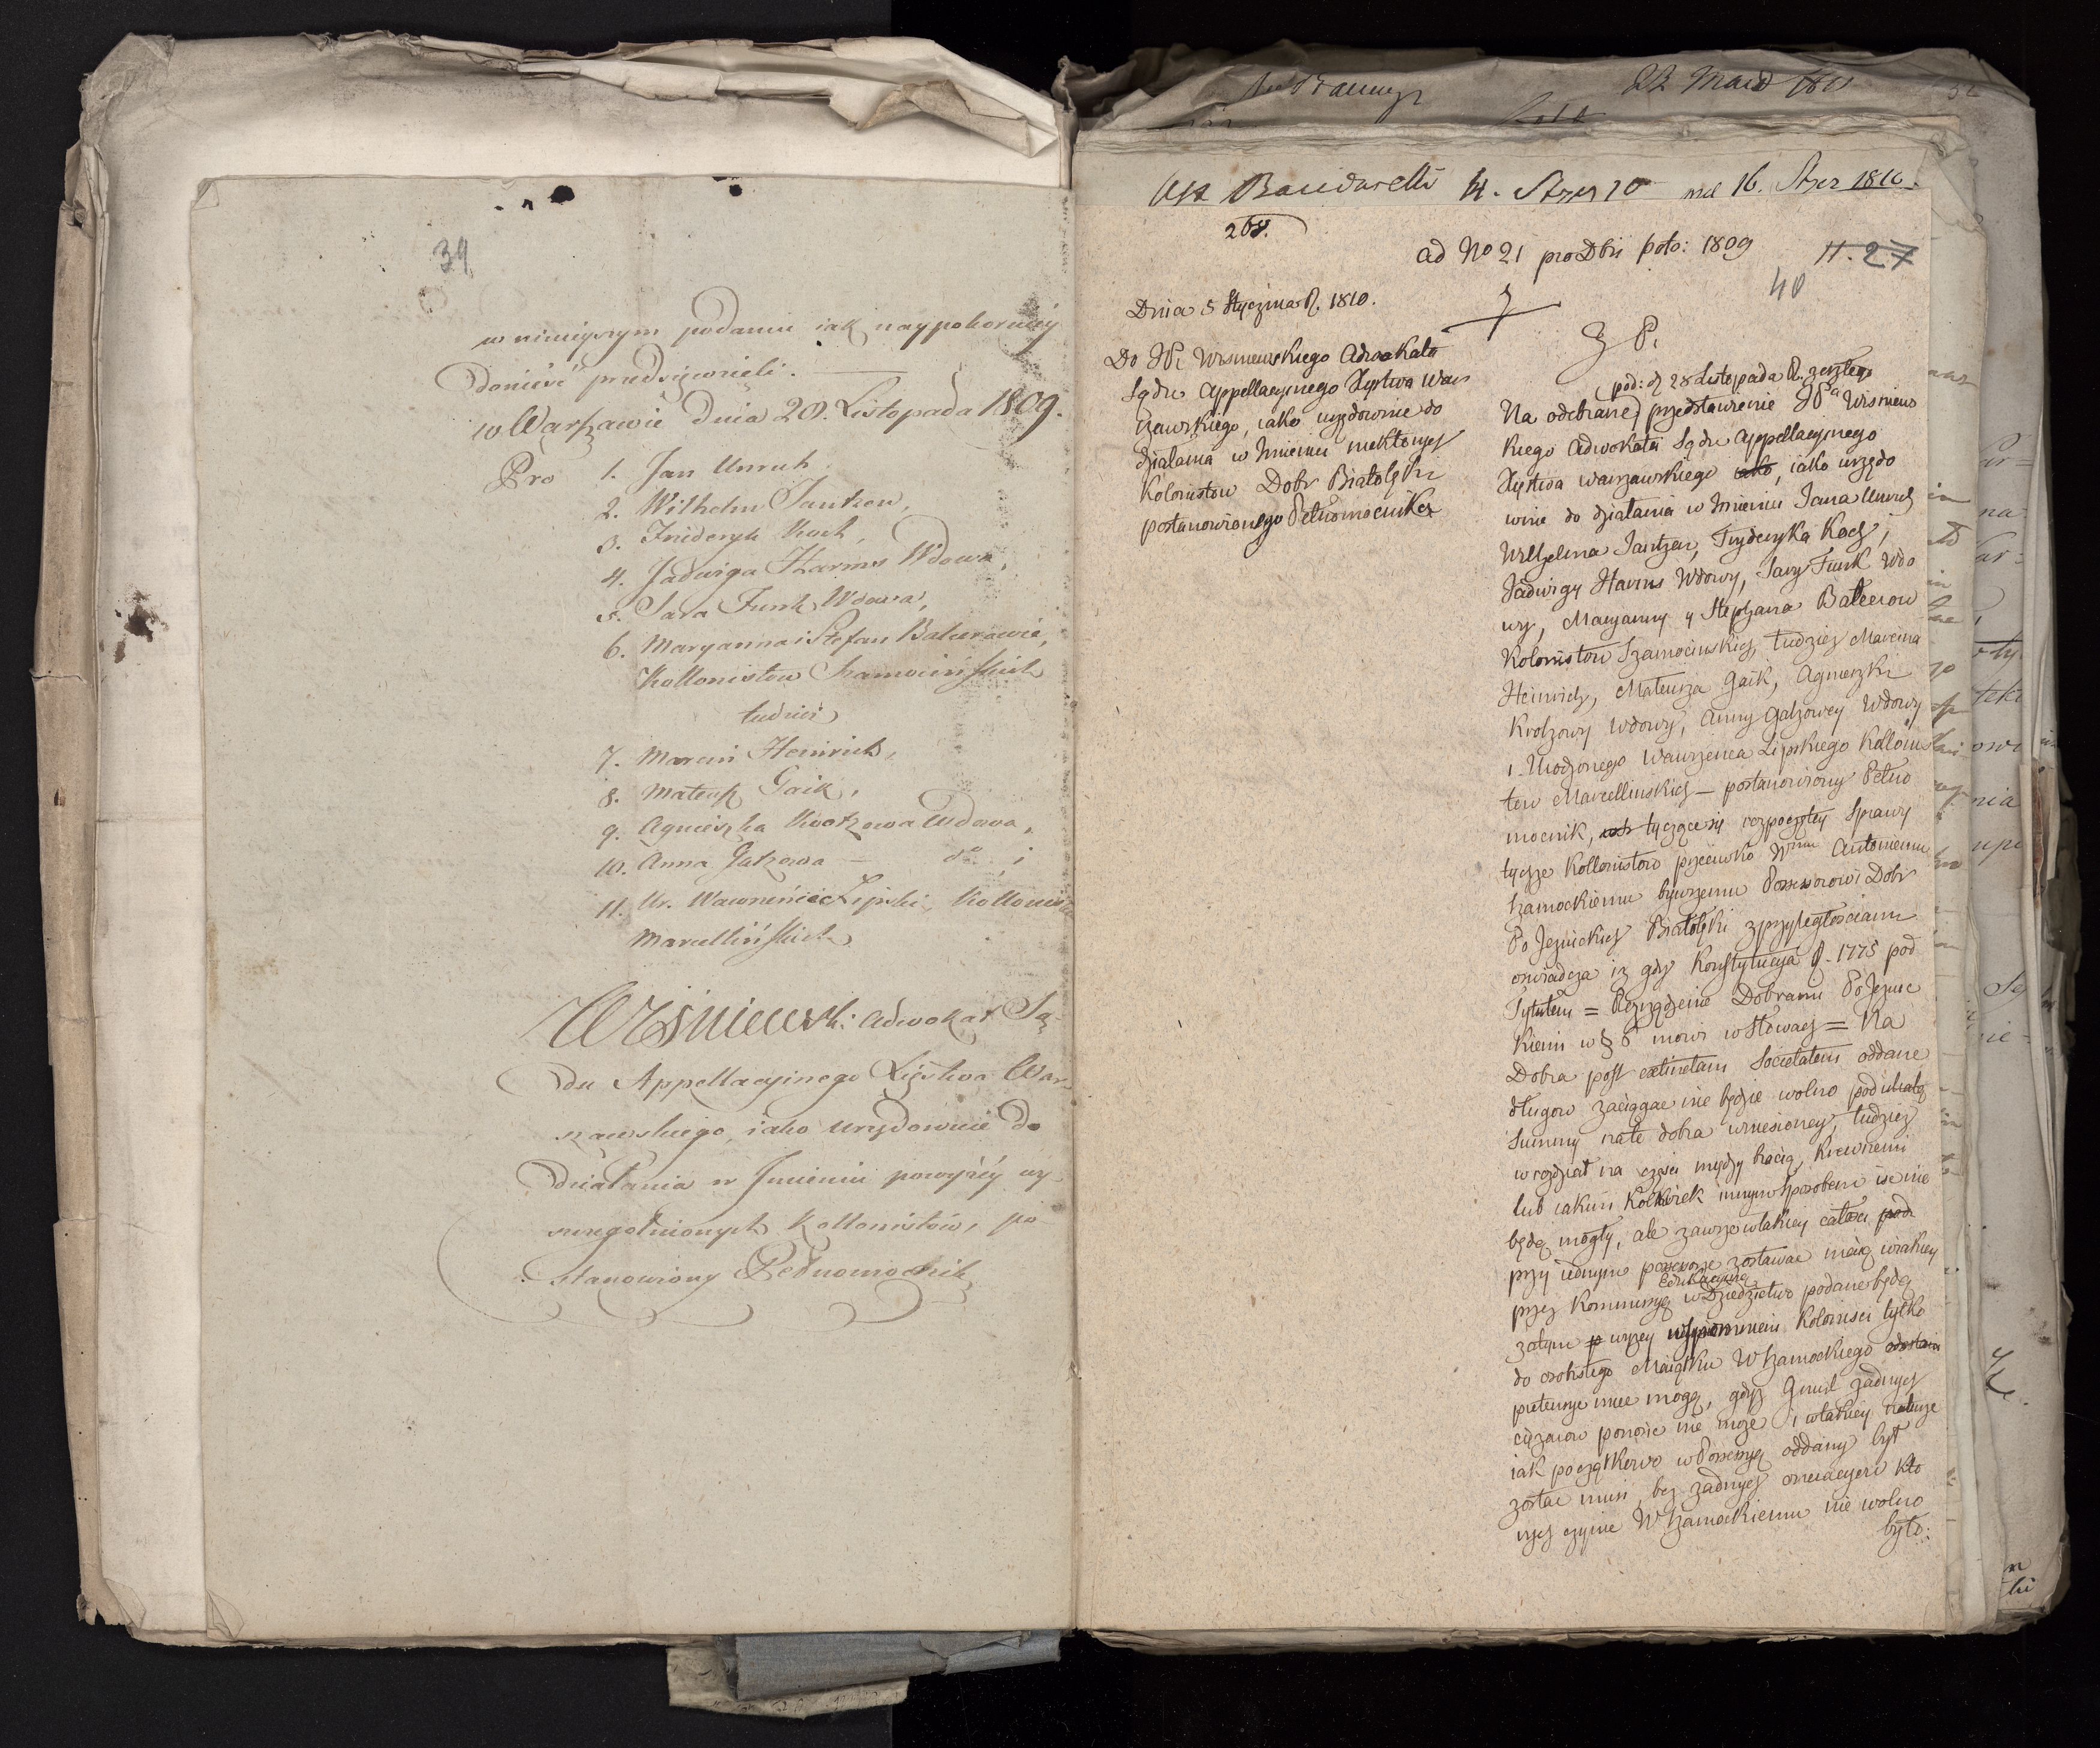 39
w ninieyszym podaniu iak naypokorniéy
donieść przedsięwzieli.
w Warszawie dnia 20. Listopada 1809.
Pro 1. Jan Unruh
2. Wilhelm Jantzen,
3. Friderych Koch,
4. Jadwiga Harms Wdowa,
5. Sara Funk Wdowa,
6. Maryanna i Stefan Balcerowie,
Kollonistów Szamocińskich
tudzież
7. Marcin Heinrich,
8. Mateusz Gaik,
9. Agnieszka Krotzowa Wdowa,
10. Anna Gatzowa — do i
11. Ur. Wawrzeniec Lipski, Kollonis
Marcellińskich
Wiśniewski Adwokat Są-
du Appellacyinego Xięstwa War-
szawskiego, iako urzędownie do
działania w Jmieniu powyżéy wy-
szczególnionych Kollonistów, po
stanowiony Pełnomocnik
23 Maid 1811
4. Stycz 10 16. Stycz 1810.
268.
ad No 21 pro Dbri 1809
11. 27
40
Dnia 5 Stycznia R. 1810.
Do JP. Wisniewskiego Adwokata
Sądu Appellacyinego Xięstwa War
szawskiego, iako urzędownie do
działania w Imieniu niektorych
Kolonistow Dobr Białołęki
postanowionego Pełnomocnika
pod: d 28 Listopada R. zeszłego
Na odebrane przedstawienie JPa Wisniews
kiego Adwokata Sądu Appellacyinego
Xięstwa Warszawskiego iako, iako urzędo
wnie do działania w Imieniu Jana Unruch
Wilhelma Jantzen, Fryderyka Koch,
Jadwigi Harms Wdowy, Sary Funk Wdo
wy, Maryanny y Stephana Balcerow
Kolonistow Szamocinskich, tudziez Marcina
Heinrich, Mateusza Gaik, Agnieszki
Krotzowy Wdowy, Anny Gatzowey Wdowy
i Urodzonego Wawrzenca Lipskiego Kollonis
tow Marcellinskich — postanowiony Pełno
mocnik, tyczące się rozpoczętey Sprawy
tychze Kollonistow przeciwko Wmu Antoniemu
Szamockiemu bywszemu Possessorowi Dobr
Po Jezuickich Białołęki z przyległosciami
oswiadcza iz gdy Konstytucya R. 1775 pod
Tytułem = Rozrządzenie Dobrami Po Jezuic
kiemi w § 8 mowi w Słowach = Na
Dobra post extinctam Societatem oddane
długow zaciągac nie będzie wolno pod utratą
Summy na te dobra wniesioney, tudziez
w rozdział na częsci między bracią, krewnemi
lub iakim kolwiek innym sposobem isc nie
będą mogły, ale zawsze w takiey całosci pod
przy iednym possessorze zostawac maią w iakiey
Edukacyiną
przez Kommissyą w Dziedzictwo podane będą
zatym wyzey wspomnieni Kolonisci tylko
do osobistego Maiątku W Szamockiego
pretensye miec mogą, gdyz Grunt zadnych
cięzarow ponosic nie moze i w takiey naturze
iak początkowo w Possessyą oddany był
zostac musi bez zadnych kto
rych czynic W Szamockiemu nie wolno
było: